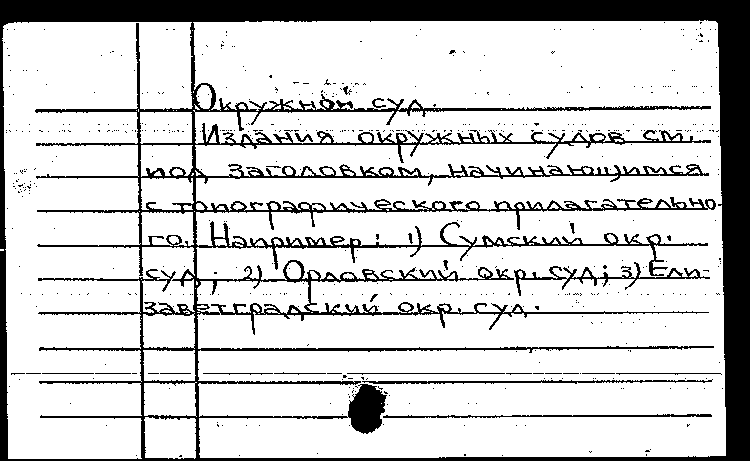 Окружной суд.
Издания окружных судов см.
под заголовком, начинающимся
с топографического прилагательно-
го. Например: 1) Сумский окр.
суд; 2) Орловский окр. суд; 3) Ели-
заветградский окр. суд.